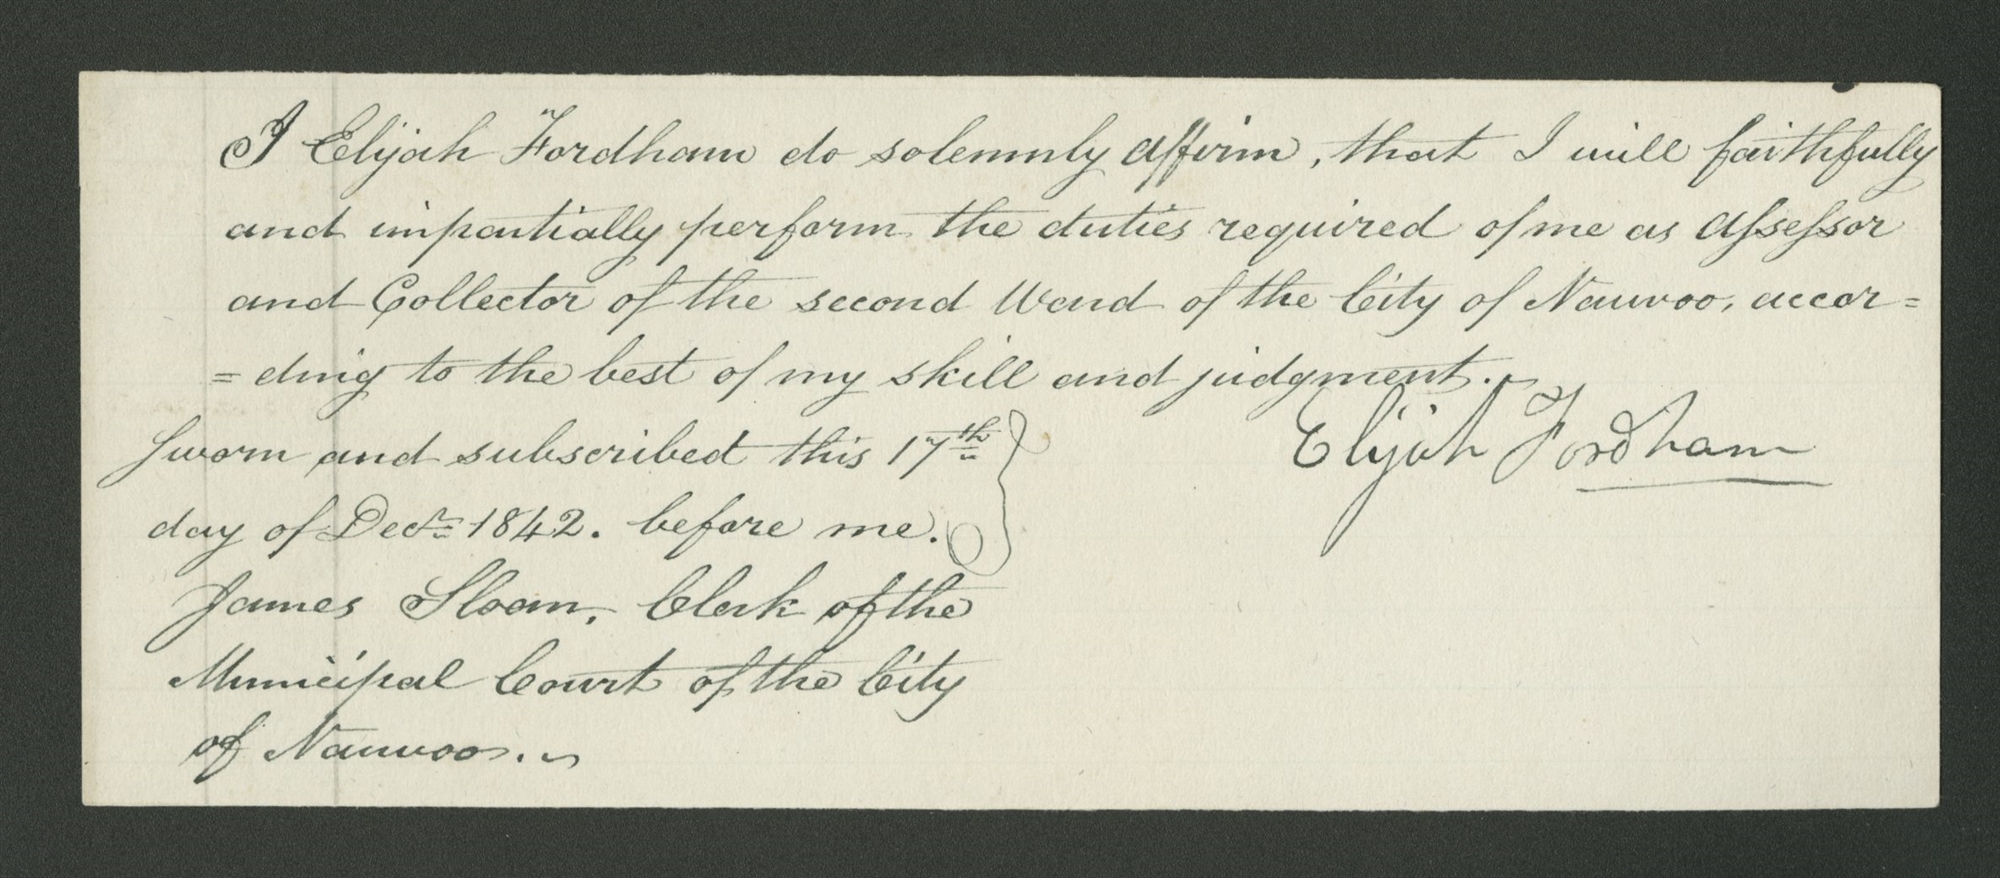 I Elijah Fordham do solemnly affirm, that I will faithfully
and impartially perform the duties required of me as Assessor
and Collector of the second Ward of the City of Nauvoo, accor=
=ding to the best of my skill and judgment.~
Elijah Fordham
Sworn and subscribed this 17th
day of Decr. 1842. before me.
James Sloan, Clerk of the
Municipal Court of the City
of Nauvoo.~